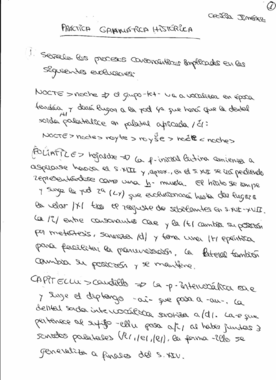 Cecilia Jiménez
①
PRÁCTICA GRAMÁTICA HISTÓRICA
1. Señala los procesos consonánticos implicados en las
siguientes evoluciones:
NOCTE > noche ⇒ el grupo -kt- va a vocalizar en época
tardía y dará lugar a la yod ya que hará que la dental
sorda palatalice en palatal africada /ĉ/:
NOCTE > nocte > noyte > > noche
⇒ la f- inicial latina comienza a
aspirarse hacia el S. y en el S. XVI se irá perdiendo
representándose como una h- muda. El hiato se rompe
y surge la yod 2ª (l+y) que evolucionará hasta dar lugar a
la velar /x/ tras el reajuste de sibilantes en S. XVI-XVII.
la /i/ entre consonantes cae y la /t/ cambia su posición
por metátesis, sonoriza /d/ y toma una /e/ epentética
para facilitar la pronunciación. la lateral también
cambia su posición y se mantiene.
CAPITELLU > caudillo ⇒ la -p- intervocálica cae
y surge el diptongo -ai- que pasa a -au-. La
dental sorda intervocálica sonoriza a /d/. La -e- que
pertenece al sufijo -ellu pasa a /i/ al haber juntas 3
sonidos palatales la forma -illo se
generaliza a finales del S. XIV.